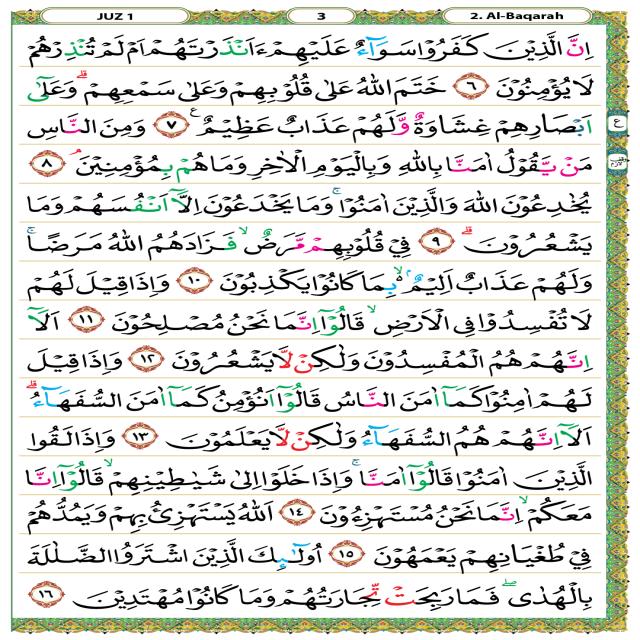 JUZ 1 3 2. Al-Baqarah
اِنَّ الَّذِيْنَ كَفَرُوْا سَوَآءٌ عَلَيْهِمْ ءَاَنْذَرْتَهُمْ اَمْ لَمْ تُنْذِرْهُمْ
لَا يُؤْمِنُوْنَ ٦ خَتَمَ اللّٰهُ عَلٰى قُلُوْبِهِمْ وَعَلٰى سَمْعِهِمْ ۗ وَعَلٰٓى
اَبْصَارِهِمْ غِشَاوَةٌ وَّلَهُمْ عَذَابٌ عَظِيْمٌ ࣖ ٧ وَمِنَ النَّاسِ
ع
مَنْ يَّقُوْلُ اٰمَنَّا بِاللّٰهِ وَبِالْيَوْمِ الْاٰخِرِ وَمَا هُمْ بِمُؤْمِنِيْنَ ۘ ٨
يُخٰدِعُوْنَ اللّٰهَ وَالَّذِيْنَ اٰمَنُوْا ۚ وَمَا يَخْدَعُوْنَ اِلَّآ اَنْفُسَهُمْ وَمَا
يَشْعُرُوْنَ ۗ ٩ فِيْ قُلُوْبِهِمْ مَّرَضٌ ۙ فَزَادَهُمُ اللّٰهُ مَرَضًا ۚ
وَلَهُمْ عَذَابٌ اَلِيْمٌ ۢ ۙ بِمَا كَانُوْا يَكْذِبُوْنَ ١٠ وَاِذَا قِيْلَ لَهُمْ
لَا تُفْسِدُوْا فِى الْاَرْضِ ۙ قَالُوْٓا اِنَّمَا نَحْنُ مُصْلِحُوْنَ ١١ اَلَآ
اِنَّهُمْ هُمُ الْمُفْسِدُوْنَ وَلٰكِنْ لَّا يَشْعُرُوْنَ ١٢ وَاِذَا قِيْلَ
لَهُمْ اٰمِنُوْا كَمَآ اٰمَنَ النَّاسُ قَالُوْٓا اَنُؤْمِنُ كَمَآ اٰمَنَ السُّفَهَاۤءُ ۗ
اَلَآ اِنَّهُمْ هُمُ السُّفَهَاۤءُ وَلٰكِنْ لَّا يَعْلَمُوْنَ ١٣ وَاِذَا لَقُوا
الَّذِيْنَ اٰمَنُوْا قَالُوْٓا اٰمَنَّا ۚ وَاِذَا خَلَوْا اِلٰى شَيٰطِيْنِهِمْ ۙ قَالُوْٓا اِنَّا
مَعَكُمْ ۙ اِنَّمَا نَحْنُ مُسْتَهْزِءُوْنَ ١٤ اَللّٰهُ يَسْتَهْزِئُ بِهِمْ وَيَمُدُّهُمْ
فِيْ طُغْيَانِهِمْ يَعْمَهُوْنَ ١٥ اُولٰۤىِٕكَ الَّذِيْنَ اشْتَرَوُا الضَّلٰلَةَ
بِالْهُدٰى ۖ فَمَا رَبِحَتْ تِّجَارَتُهُمْ وَمَا كَانُوْا مُهْتَدِيْنَ ١٦